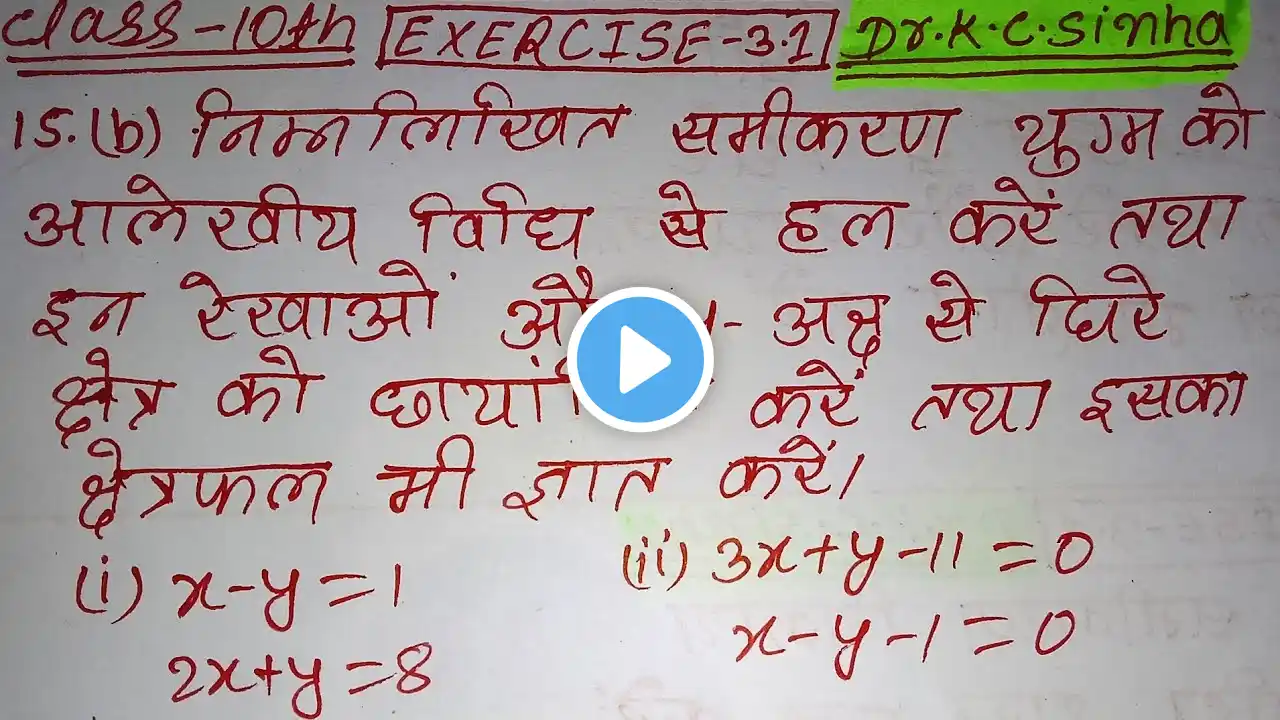 Class-10th EXERCISE-3.1 Dr.K.C.Sinha
15.(b) निम्नलिखित समीकरण युग्म को
आलेखीय विधि से हल करें तथा
इन रेखाओं अक्ष से घिरे
क्षेत्र को करें तथा इसका
क्षेत्रफल भी ज्ञात करें।
(i) x-y=1
2x+y=8
(ii) 3x+y-11=0
x-y-1=0